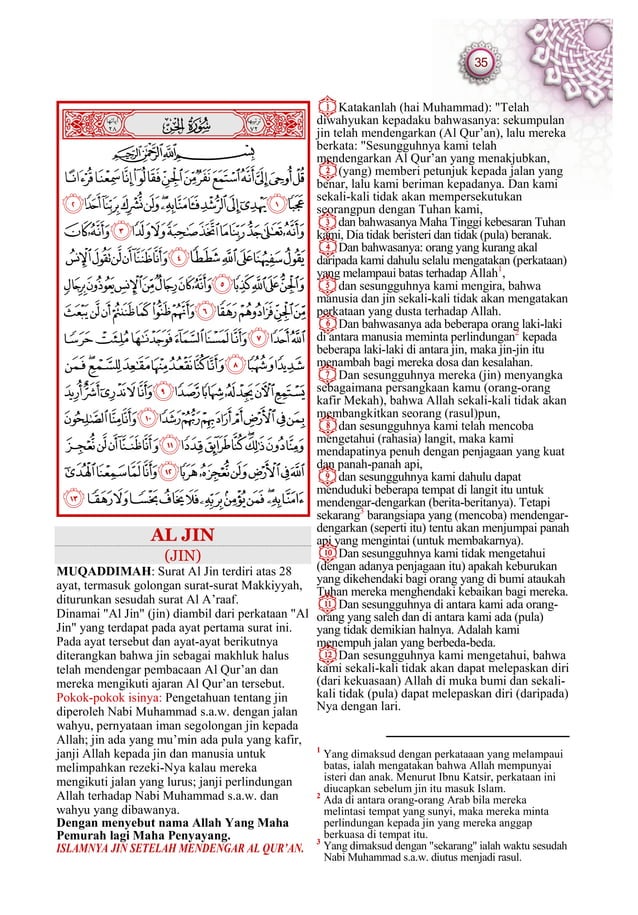 35
سُورَةُ الجِنّ
بِسْمِ اللَّهِ الرَّحْمَٰنِ الرَّحِيمِ
قُلْ أُوحِيَ إِلَيَّ أَنَّهُ اسْتَمَعَ نَفَرٌ مِّنَ الْجِنِّ فَقَالُوا إِنَّا سَمِعْنَا قُرْءَانًا
عَجَبًا ١ يَهْدِي إِلَى الرُّشْدِ فَـَٔامَنَّا بِهِ وَلَن نُّشْرِكَ بِرَبِّنَا أَحَدًا ٢
وَأَنَّهُ تَعَالَىٰ جَدُّ رَبِّنَا مَا اتَّخَذَ صَاحِبَةً وَلَا وَلَدًا ٣ وَأَنَّهُ كَانَ
يَقُولُ سَفِيهُنَا عَلَى اللَّهِ شَطَطًا ٤ وَأَنَّا ظَنَنَّا أَن لَّن تَقُولَ الْإِنسُ
وَالْجِنُّ عَلَى اللَّهِ كَذِبًا ٥ وَأَنَّهُ كَانَ رِجَالٌ مِّنَ الْإِنسِ يَعُوذُونَ بِرِجَالٍ
مِّنَ الْجِنِّ فَزَادُوهُمْ رَهَقًا ٦ وَأَنَّهُمْ ظَنُّوا كَمَا ظَنَنتُمْ أَن لَّن يَبْعَثَ
اللَّهُ أَحَدًا ٧ وَأَنَّا لَمَسْنَا السَّمَاءَ فَوَجَدْنَاهَا مُلِئَتْ حَرَسًا
شَدِيدًا وَشُهُبًا ٨ وَأَنَّا كُنَّا نَقْعُدُ مِنْهَا مَقَاعِدَ لِلسَّمْعِ فَمَن
يَسْتَمِعِ الْآنَ يَجِدْ لَهُ شِهَابًا رَّصَدًا ٩ وَأَنَّا لَا نَدْرِي أَشَرٌّ أُرِيدَ
بِمَن فِي الْأَرْضِ أَمْ أَرَادَ بِهِمْ رَبُّهُمْ رَشَدًا ١٠ وَأَنَّا مِنَّا الصَّالِحُونَ
وَمِنَّا دُونَ ذَٰلِكَ كُنَّا طَرَائِقَ قِدَدًا ١١ وَأَنَّا ظَنَنَّا أَن لَّن نُّعْجِزَ
اللَّهَ فِي الْأَرْضِ وَلَن نُّعْجِزَهُ هَرَبًا ١٢ وَأَنَّا لَمَّا سَمِعْنَا الْهُدَىٰ
ءَامَنَّا بِهِ فَمَن يُؤْمِن بِرَبِّهِ فَلَا يَخَافُ بَخْسًا وَلَا رَهَقًا ١٣
AL JIN
(JIN)
MUQADDIMAH: Surat Al Jin terdiri atas 28
ayat, termasuk golongan surat-surat Makkiyyah,
diturunkan sesudah surat Al A’raaf.
Dinamai "Al Jin" (jin) diambil dari perkataan "Al
Jin" yang terdapat pada ayat pertama surat ini.
Pada ayat tersebut dan ayat-ayat berikutnya
diterangkan bahwa jin sebagai makhluk halus
telah mendengar pembacaan Al Qur’an dan
mereka mengikuti ajaran Al Qur’an tersebut.
Pokok-pokok isinya: Pengetahuan tentang jin
diperoleh Nabi Muhammad s.a.w. dengan jalan
wahyu, pernyataan iman segolongan jin kepada
Allah; jin ada yang mu’min ada pula yang kafir,
janji Allah kepada jin dan manusia untuk
melimpahkan rezeki-Nya kalau mereka
mengikuti jalan yang lurus; janji perlindungan
Allah terhadap Nabi Muhammad s.a.w. dan
wahyu yang dibawanya.
Dengan menyebut nama Allah Yang Maha
Pemurah lagi Maha Penyayang.
ISLAMNYA JIN SETELAH MENDENGAR AL QUR’AN.
1 Katakanlah (hai Muhammad): "Telah
diwahyukan kepadaku bahwasanya: sekumpulan
jin telah mendengarkan (Al Qur’an), lalu mereka
berkata: "Sesungguhnya kami telah
mendengarkan Al Qur’an yang menakjubkan,
2 (yang) memberi petunjuk kepada jalan yang
benar, lalu kami beriman kepadanya. Dan kami
sekali-kali tidak akan mempersekutukan
seorangpun dengan Tuhan kami,
3 dan bahwasanya Maha Tinggi kebesaran Tuhan
kami, Dia tidak beristeri dan tidak (pula) beranak.
4 Dan bahwasanya: orang yang kurang akal
daripada kami dahulu selalu mengatakan (perkataan)
yang melampaui batas terhadap Allah1,
5 dan sesungguhnya kami mengira, bahwa
manusia dan jin sekali-kali tidak akan mengatakan
perkataan yang dusta terhadap Allah.
6 Dan bahwasanya ada beberapa orang laki-laki
di antara manusia meminta perlindungan2 kepada
beberapa laki-laki di antara jin, maka jin-jin itu
menambah bagi mereka dosa dan kesalahan.
7 Dan sesungguhnya mereka (jin) menyangka
sebagaimana persangkaan kamu (orang-orang
kafir Mekah), bahwa Allah sekali-kali tidak akan
membangkitkan seorang (rasul)pun,
8 dan sesungguhnya kami telah mencoba
mengetahui (rahasia) langit, maka kami
mendapatinya penuh dengan penjagaan yang kuat
dan panah-panah api,
9 dan sesungguhnya kami dahulu dapat
menduduki beberapa tempat di langit itu untuk
mendengar-dengarkan (berita-beritanya). Tetapi
sekarang3 barangsiapa yang (mencoba) mendengar-
dengarkan (seperti itu) tentu akan menjumpai panah
api yang mengintai (untuk membakarnya).
10 Dan sesungguhnya kami tidak mengetahui
(dengan adanya penjagaan itu) apakah keburukan
yang dikehendaki bagi orang yang di bumi ataukah
Tuhan mereka menghendaki kebaikan bagi mereka.
11 Dan sesungguhnya di antara kami ada orang-
orang yang saleh dan di antara kami ada (pula)
yang tidak demikian halnya. Adalah kami
menempuh jalan yang berbeda-beda.
12 Dan sesungguhnya kami mengetahui, bahwa
kami sekali-kali tidak akan dapat melepaskan diri
(dari kekuasaan) Allah di muka bumi dan sekali-
kali tidak (pula) dapat melepaskan diri (daripada)
Nya dengan lari.
1 Yang dimaksud dengan perkataaan yang melampaui
batas, ialah mengatakan bahwa Allah mempunyai
isteri dan anak. Menurut Ibnu Katsir, perkataan ini
diucapkan sebelum jin itu masuk Islam.
2 Ada di antara orang-orang Arab bila mereka
melintasi tempat yang sunyi, maka mereka minta
perlindungan kepada jin yang mereka anggap
berkuasa di tempat itu.
3 Yang dimaksud dengan "sekarang" ialah waktu sesudah
Nabi Muhammad s.a.w. diutus menjadi rasul.